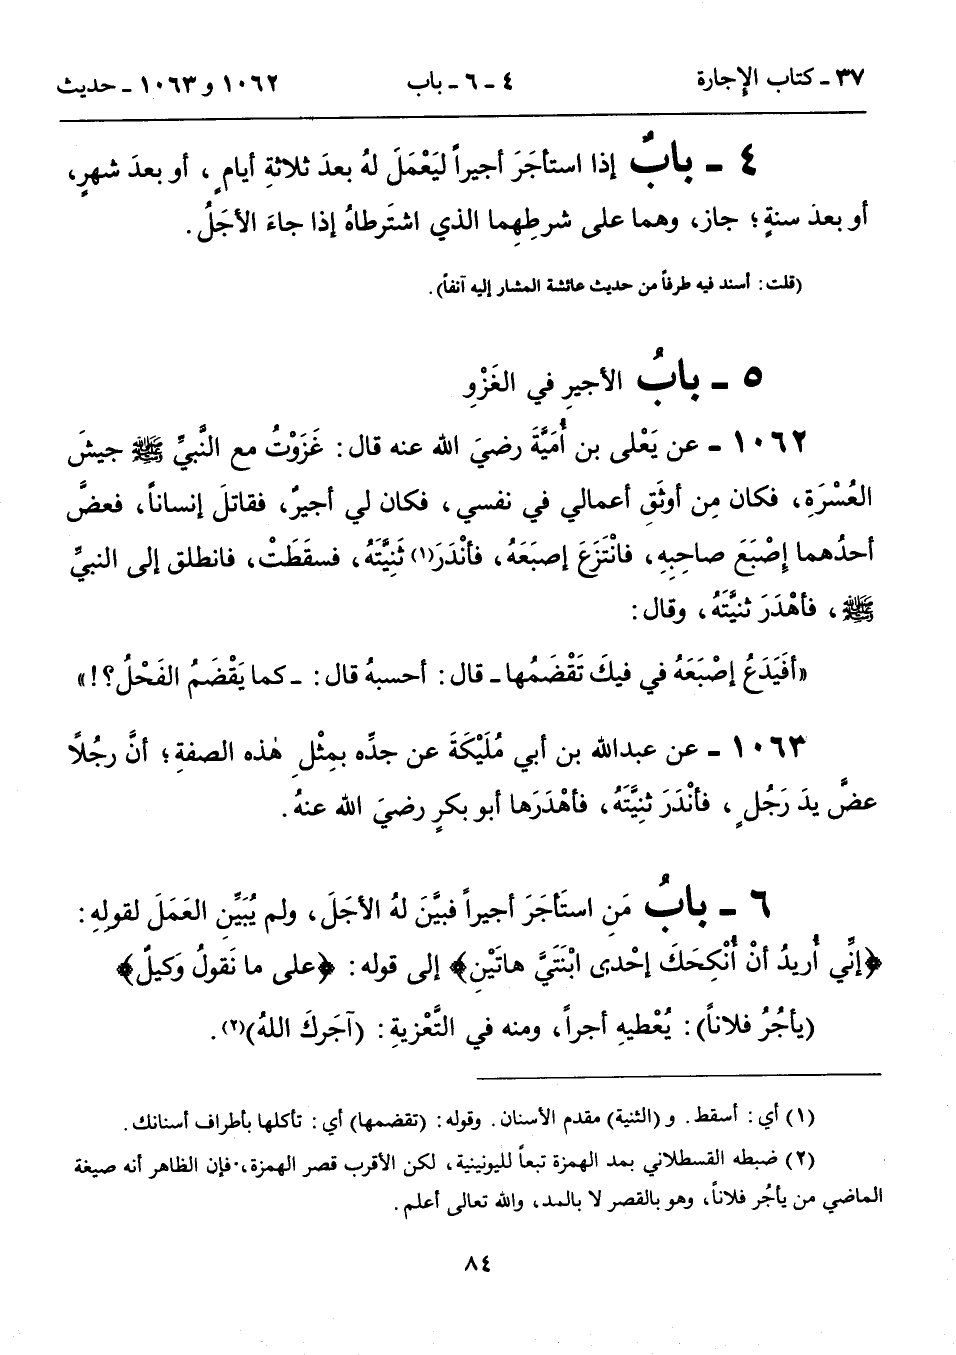 ٣٧ ـ كتاب الإجارة ٤ ـ ٦ ـ باب ١٠٦٢ و ١٠٦٣ ـ حديث
٤ ـ بابٌ إذا استأجَرَ أجيراً ليَعْمَلَ لهُ بعدَ ثلاثةِ أيامٍ، أو بعدَ شهرٍ،
أو بعدَ سنةٍ؛ جاز، وهما على شرطِهِما الذي اشترطاهُ إذا جاءَ الأجَلُ.
(قلت: أسند فيه طرفاً من حديث عائشة المشار إليه آنفاً).
٥ ـ بابُ الأجيرِ في الغَزْوِ
١٠٦٢ ـ عن يَعْلى بن أُمَيَّةَ رضيَ الله عنه قال: غَزَوْتُ مع النَّبيِّ ﷺ جيشَ
العُسْرَةِ، فكان مِن أوثَقِ أعمالي في نفسي، فكان لي أجيرٌ، فقاتلَ إنساناً، فعضَّ
أحدُهما إصْبَعَ صاحِبِهِ، فانْتزَعَ إصبَعَهُ، فأنْدَرَ(١) ثَنِيَّتَهُ، فسقَطَتْ، فانطلق إلى النبيِّ
ﷺ، فأهْدَرَ ثنيَّتَهُ، وقال:
«أفَيَدَعُ إصْبَعَهُ في فيكَ تَقْضَمُها ـ قال: أحسبهُ قال: ـ كما يَقْضَمُ الفَحْلُ؟!»
١٠٦٣ ـ عن عبدالله بن أبي مُلَيْكَةَ عن جدِّه بمِثْلِ هٰذه الصفةِ؛ أنَّ رجُلًا
عضَّ يدَ رَجُلٍ، فأنْدَرَ ثنِيَّتَهُ، فأهْدَرَها أبو بكرٍ رضيَ الله عنهُ.
٦ ـ بابُ مَنِ استَأجَرَ أجيراً فبيَّنَ لهُ الأجَلَ، ولم يُبَيِّنِ العَمَلَ لقولِهِ:
﴿إنِّي أُريدُ أنْ أُنْكِحَكَ إحْدى ابْنَتَيَّ هاتَيْنِ﴾ إلى قوله: ﴿على ما نَقولُ وَكيلٌ﴾
(يأجُرُ فلاناً): يُعْطيهِ أجراً، ومنه في التَّعْزيةِ: (آجَركَ اللهُ)(٢).
(١) أي: أسقط. و (الثنية) مقدم الأسنان. وقوله: (تقضمها) أي: تأكلها بأطراف أسنانك.
(٢) ضبطه القسطلاني بمد الهمزة تبعاً لليونينية، لكن الأقرب قصر الهمزة، فإن الظاهر أنه صيغة
الماضي من يأجُر فلاناً، وهو بالقصر لا بالمد، والله تعالى أعلم.
٨٤